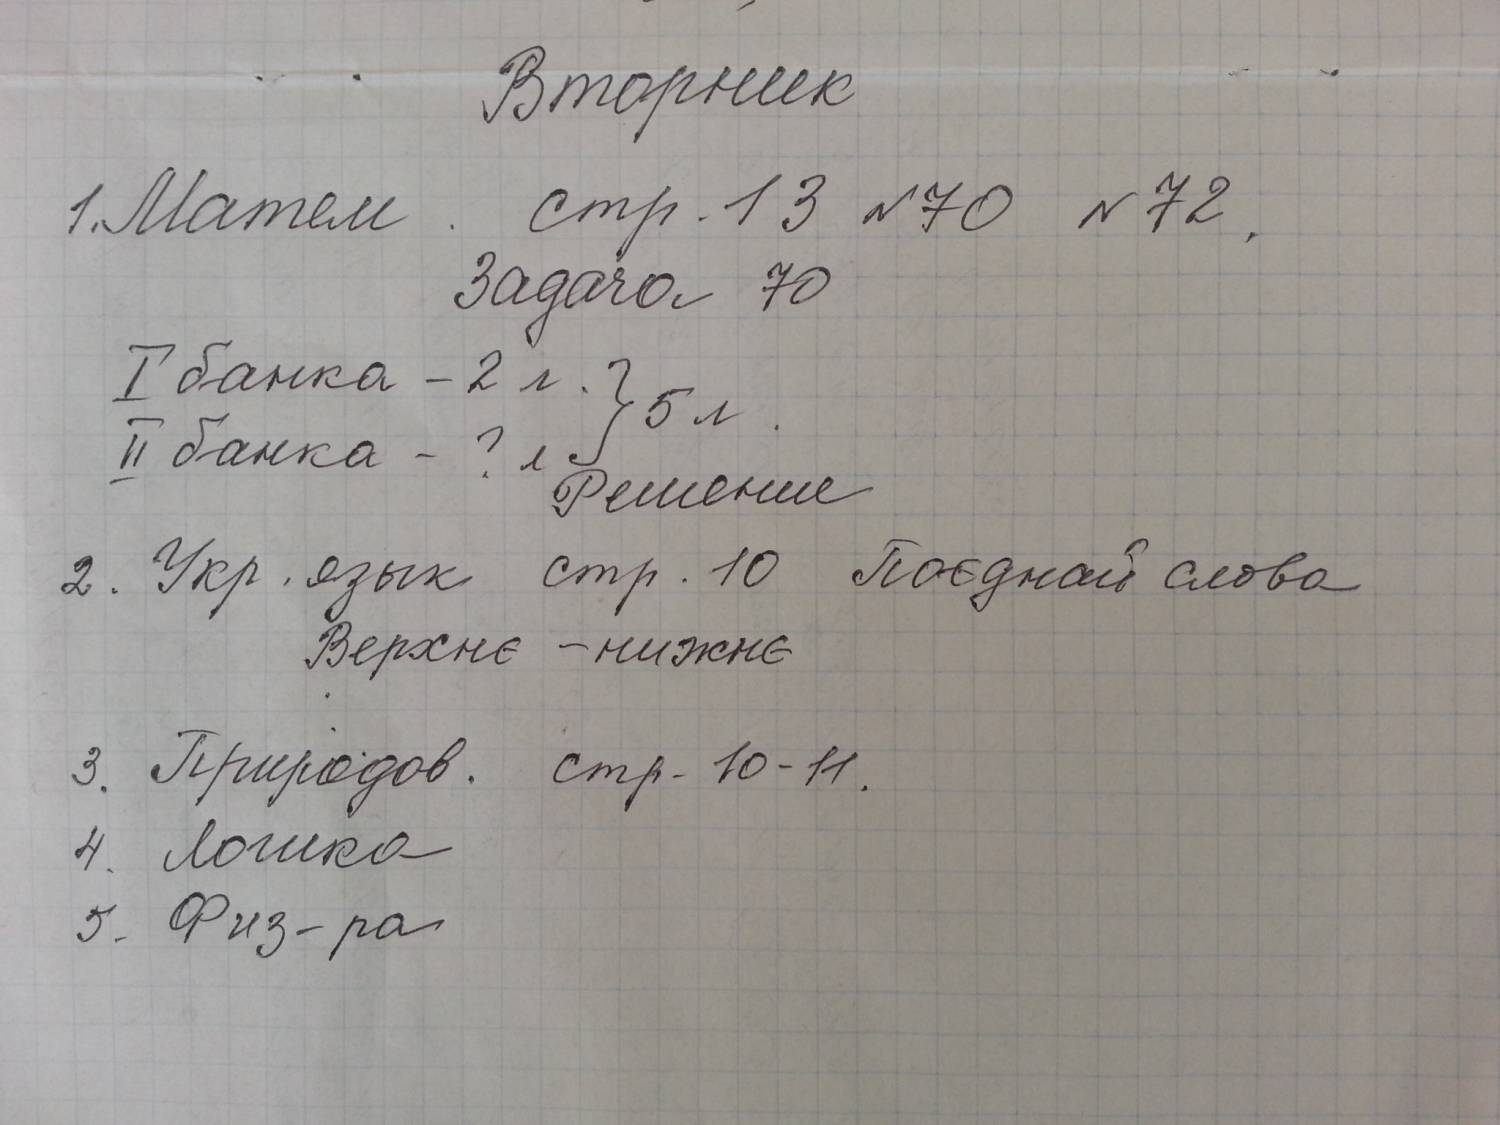 Вторник
1. Матем. стр. 13 №70 №72.
Задача 70
I банка – 2 л. } 5 л.
II банка – ? л
Решение
2. Укр. язык стр. 10 Поєднай слова
Верхнє – нижнє
3. Природов. стр. 10-11.
4. Логика
5. Физ-ра